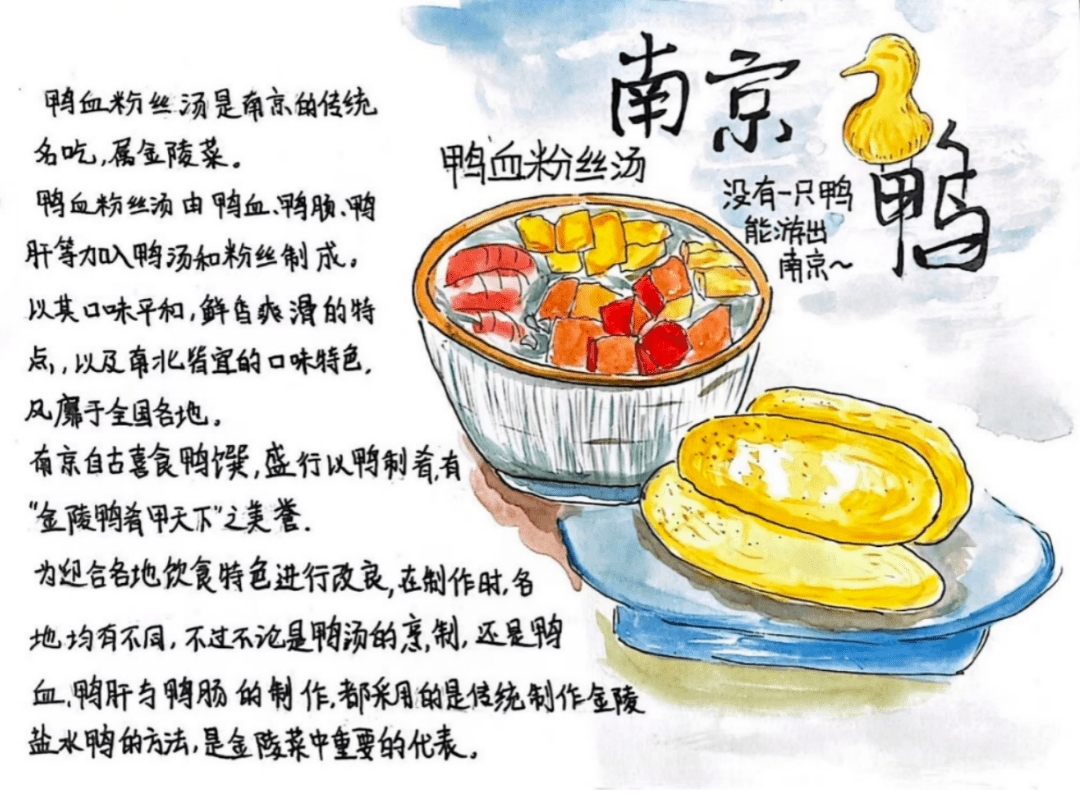 南京鸭
没有一只鸭
能游出
南京~
鸭血粉丝汤
鸭血粉丝汤是南京的传统
名吃,属金陵菜。
鸭血粉丝汤由鸭血、鸭肠、鸭
肝等加入鸭汤和粉丝制成。
以其口味平和,鲜香爽滑的特
点,以及南北皆宜的口味特色,
风靡于全国各地。
南京自古喜食鸭馔,盛行以鸭制肴,有
"金陵鸭肴甲天下"之美誉.
为迎合各地饮食特色进行改良,在制作时,各
地均有不同,不过不论是鸭汤的烹制,还是鸭
血、鸭肝与鸭肠的制作,都采用的是传统制作金陵
盐水鸭的方法,是金陵菜中重要的代表。